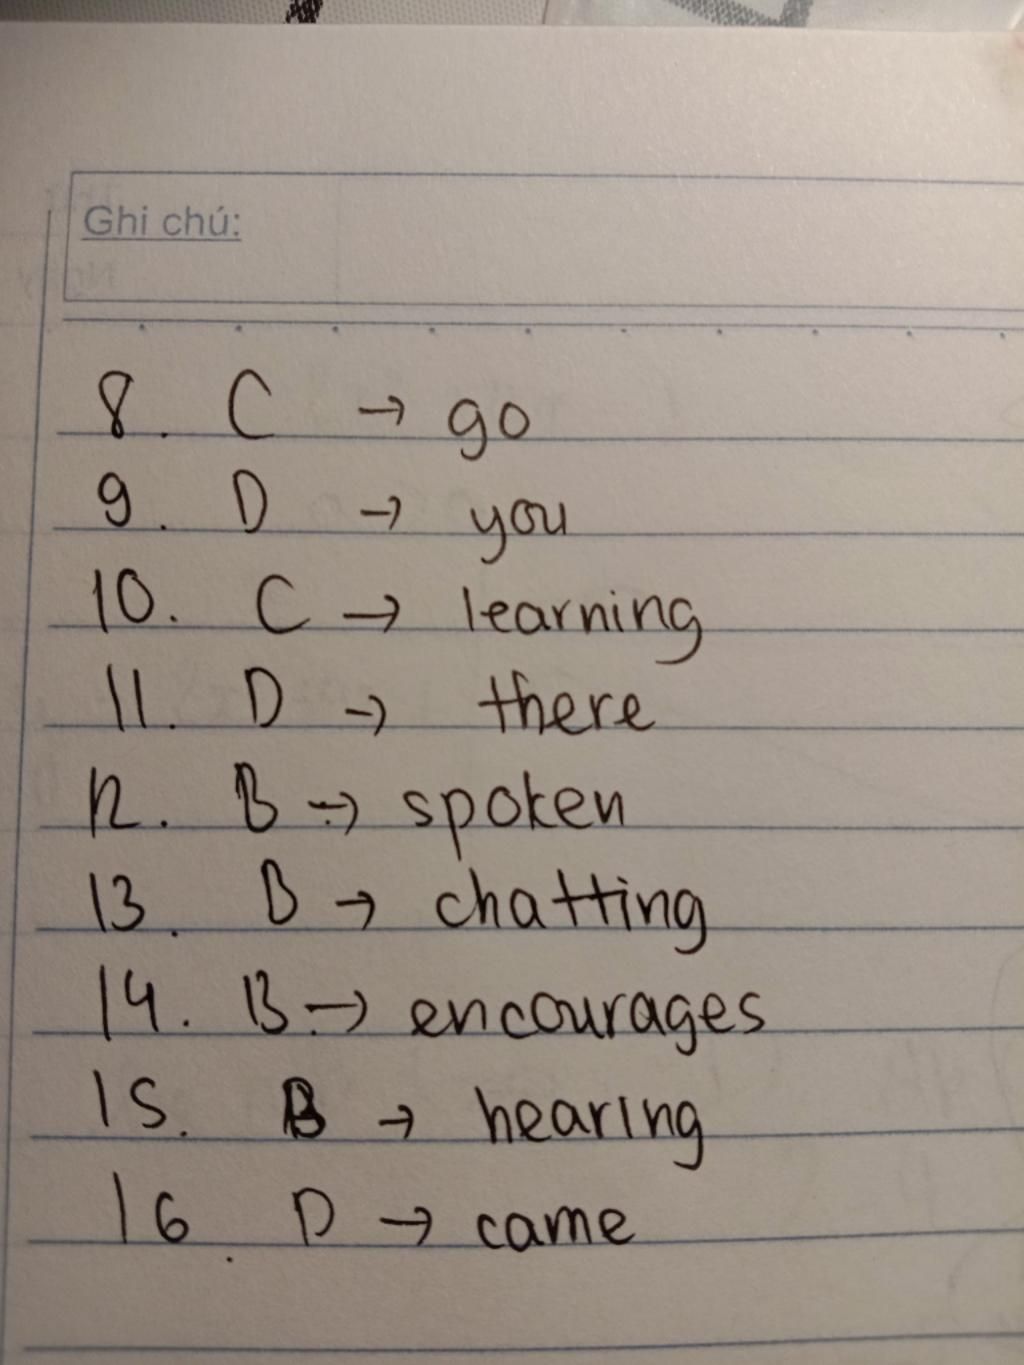 Ghi chú:
8. C → go
9. D → you
10. C → learning
11. D → there
12. B → spoken
13. B → chatting
14. B → encourages
15. B → hearing
16. D → came